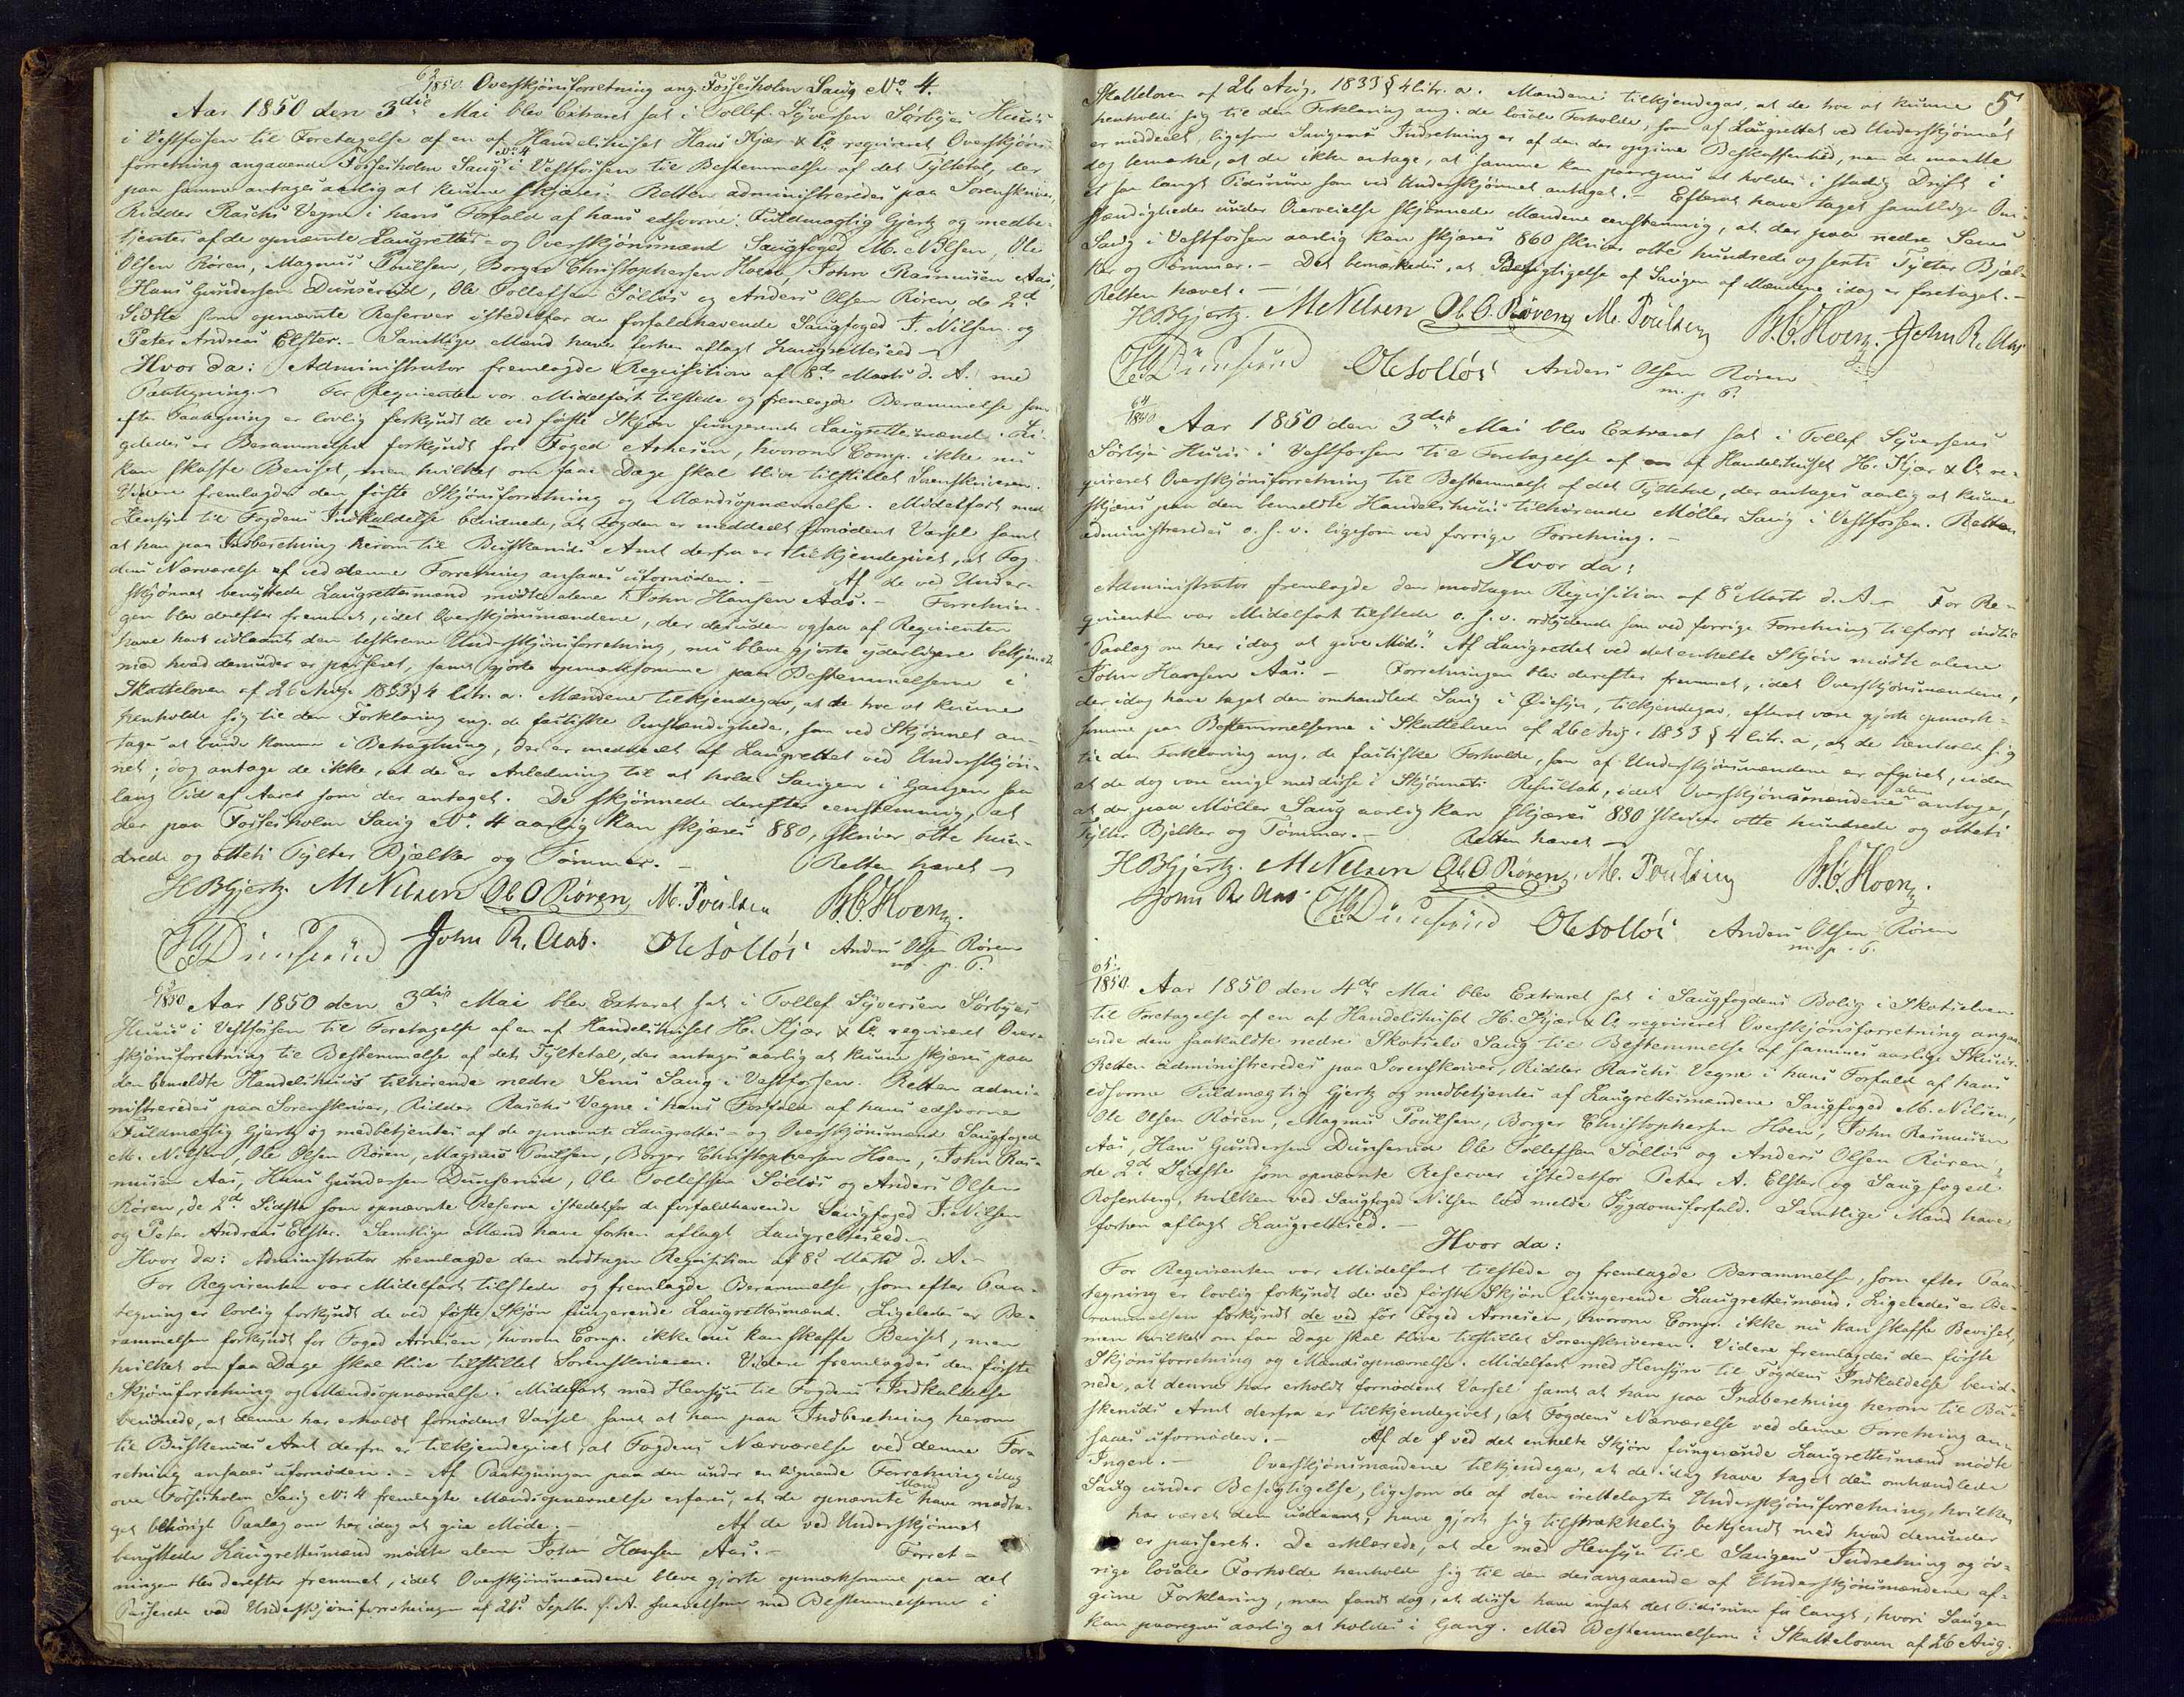 62/1850. Overskjönsforretning ang. Fossesholm Saug No 4.
Aar 1850 den 3die Mai blev Extraret sat i Tollef Syversen Sørbyes Huus
i Vestfossen til Foretagelse af en af Handelshuset Hans Kjær & Co reqvireret Overskjöns-
forretning angaaende Fossesholm Saug No 4 i Vestfossen til Bestemmelse af det Tyltetal, der
paa samme antages aarlig at kunne skjæres. Retten administreredes paa Sorenskriver,
Ridder Raschs Vegne i hans Forfald af hans edsvorne Fuldmægtig Gjertz og medbe-
tjentes af de opnævnte Laugrettes- og Overskjönsmænd Saugfoged M. Nilsen, Ole
Olsen Røren, Magnus Poulsen, Borger Christophersen Hoen, John Rasmussen Aas,
Hans Gundersen Dunserud, Ole Tollefsen Solløs og Anders Olsen Røren, de 2de
Sidste som opnævnte Reserver istedetfor de forfaldhavende Saugfoged J. Nilsen og
Peter Andreas Elster. Samtlige Mænd have forhen aflagt Laugretteseed.
Hvor da: Administrator fremlagde Reqvisition af 8de Marts d. A. med
Paategning. For Reqvirenten var Midelfart tilstede og fremlagde Berammelse som
efter Paategning er lovlig forkyndt de ved første Skjön fungerende Laugrettesmænd. Li-
geledes er Berammelsen forkyndt for Foged Arnesen, hvorom Comp. ikke nu
kan skaffe Beviset, men hvilket om faae Dage skal blive tilstillet Sorenskriveren.
Videre fremlagdes den første Skjönsforretning og Mændsopnævnelse. Midelfart med
Hensyn til Fogdens Indkaldelse bevidnede, at Fogden er meddeelt fornødent Varsel samt
at han paa Indberetning herom til Buskeruds Amt derfra er tilkjendegivet, at Fog-
dens Nærværelse af ved denne Forretning ansaaes ufornöden. – Af de ved Under-
skjönnet benyttede Laugrettesmænd mødte alene John Hansen Aas. – Forretnin-
gen blev derefter fremmet, idet Overskjönsmændene, der desuden ogsaa af Reqvirenten
have havt udlaant den beskrevne Underskjönsforretning, nu bleve gjorte yderligere bekjendt
med hvad derunder er passeret, samt gjorte opmærksomme paa Bestemmelserne i
Skatteloven af 26 Aug. 1833 § 4 litr. a. Mændene tilkjendegav, at de troe at kunne
henholde sig til den Forklaring ang. de factiske Omstændigheder, som ved Skjönnet an-
tages at burde komme i Betragtning, der er meddeelt af Laugrettet ved Underskjön-
net; dog antage de ikke, at der er Anledning til at holde Saugen i Gangen saa
lang Tid af Aaret som der antaget. De skjönnede derefter eenstemmig, at
der paa Fossesholm Saug No 4 aarlig kan skjæres 880, skriver otte hun-
drede og otteti Tylter Bjælker og Tømmer. – Retten hævet
HBGjertz. M Nilsen Ol O Røren M. Poulsen B.C. Hoen.
HG Dunserud John R. Aas. Ole Solløs Anders Olsen Røren
m. p. P.
63/1850 Aar 1850 den 3die Mai blev Extraret sat i Tollef Syversen Sørbyes
Huus i Vestfossen til Foretagelse af en af Handelshuset H. Kjær & Co reqvireret Over-
skjönsforretning til Bestemmelse af det Tyltetal, der antages aarlig at kunne skjæres paa
den bemeldte Handelshuus tilhørende nedre Sems Saug i Vestfossen. Retten admi-
nistreredes paa Sorenskriver, Ridder Raschs Vegne i hans Forfald af hans edsvorne
Fuldmægtig Gjertz og medbetjentes af de opnævnte Laugrettes- og Overskjönsmænd Saugfoged
M. Nilsen, Ole Olsen Røren, Magnus Poulsen, Borger Christophersen Hoen, John Ras-
mussen Aas, Hans Gundersen Dunserud, Ole Tollefsen Solløs og Anders Olsen
Røren, de 2de Sidste som opnævnte Reserve istedetfor de forfaldhavende Saugfoged J. Nilsen
og Peter Andreas Elster. Samtlige Mænd have forhen aflagt Laugretteseed.
Hvor da: Administrator fremlagde den modtagne Reqvisition af 8de Marts d. A. –
For Reqvirenten var Midelfart tilstede og fremlagde Berammelse, som efter Paa-
tegning er lovlig forkyndt de ved første Skjön fungerende Laugrettesmænd. Ligeledes er Be-
rammelsen forkyndt for Foged Arnesen, hvorom Comp. ikke nu kan skaffe Beviset, men
hvilket om faa Dage skal blive tilstillet Sorenskriveren. Videre fremlagdes den første
Skjönsforretning og Mændsopnævnelse. Midelfart med Hensyn til Fogdens Indkaldelse
bevidnede, at denne har erholdt fornødent Varsel samt at han paa Indberetning herom
til Buskeruds Amt derfra er tilkjendegivet, at Fogdens Nærværelse ved denne For-
retning ansaaes ufornøden. – Af Paategningen paa den under en lignende Forretning idag
over Fossesholm Saug No 4 fremlagte Mændsopnævnelse erfares, at de opnævnte Mænd have modta-
get behørigt Paalæg om her idag at give Møde. – Af de ved Underskjönnet
benyttede Laugrettesmænd mødte alene John Hansen Aas. – Forret-
ningen blev derefter fremmet, idet Overskjönsmændene bleve gjorte opmærksomme paa det
Passerede ved Underskjönsforretningen af 21de Septb. f. A. saavelsom med Bestemmelserne i
5
Skatteloven af 26 Aug. 1833 § 4 litr. a. Mændene tilkjendegav, at de troe at kunne
henholde sig til den Forklaring ang. de locale Forholde, som af Laugrettet ved Underskjönnet
er meddeelt, ligesom Saugens Indretning er af den der opgivne Beskaffenhed, men de maatte
dog bemærke, at de ikke antage, at samme kan paaregnes at holdes i stadig Drift i
et saa langt Tidsrum som ved Underskjönnet antaget. – Efterat have taget samtlige Om-
stændigheder under Overveielse skjönnede Mændene eenstemmig, at der paa nedre Sems
Saug i Vestfossen aarlig kan skjæres 860 skriver otte hundrede og sexti Tylter Bjæl-
ker og Tømmer. – Det bemærkedes, at Besigtigelse af Saugen af Mændene idag er foretaget. –
Retten hævet. –
HBGjertz. M Nilsen Ol O. Røren M. Poulsen B.C. Hoen. John R. Aas
HG Dunserud Ole Solløs Anders Olsen Røren
m. p. P.
64/1850 Aar 1850 den 3die Mai blev Extraret sat i Tollef Syversens
Sørbyes Huus i Vestfossen til Foretagelse af en af Handelshuset H. Kjær & Co re-
qvireret Overskjönsforretning til Bestemmelse af det Tyltetal, der antages aarlig at kunne
skjæres paa den bemeldte Handelshuus tilhørende Møller Saug i Vestfossen. Retten
administreredes o. s. v. ligesom ved forrige Forretning. –
Hvor da:
Administrator fremlagde den modtagne Reqvisition af 8de Marts d. A. – For Re-
qvirenten var Midelfart tilstede o. s. v. ordlydende som ved forrige Forretning tilført indtil
"Paalæg om her idag at give Møde." Af Laugrettet ved det enkelte Skjön mødte alene
John Hansen Aas. – Forretningen blev derefter fremmet, idet Overskjönsmændene,
der idag have taget den omhandlede Saug i Øiesyn, tilkjendegav, efterat være gjorte opmærk-
somme paa Bestemmelserne i Skatteloven af 26 Aug. 1833 § 4 litr. a, at de henholdt sig
til den Forklaring ang. de factiske Forholde, som af Underskjönsmændene er afgivet, uden
at de dog vare enige med disse i Skjönnets Resultat, idet Overskjönsmændene alene antage,
at der paa Møller Saug aarlig kan skjæres 880 skriver otte hundrede og otteti
Tylter Bjelker og Tømmer. – Retten hævet
HBGjertz. M Nilsen Ol O Røren. M. Poulsen B.C. Hoen.
John R Aas HG Dunserud Ole Solløs Anders Olsen Røren
m. p. P.
65/1850. Aar 1850 den 4de Mai blev Extraret sat i Saugfogdens Bolig i Skotselven
til Foretagelse af en af Handelshuset H. Kjær & Co reqvireret Overskjönsforretning angaa-
ende den saakaldte nedre Skotselv Saug til Bestemmelse af sammes aarlige Skuur.
Retten administreredes paa Sorenskriver, Ridder Raschs Vegne i hans Forfald af hans
edsvorne Fuldmægtig Gjertz og medbetjentes af Laugrettesmændene Saugfoged M. Nilsen,
Ole Olsen Røren, Magnus Poulsen, Borger Christophersen Hoen, John Rasmussen
Aas, Hans Gundersen Dunserud Ole Tollefsen Solløs og Anders Olsen Røren,
de 2de Sidste som opnævnte Reserver istedetfor Peter A. Elster og Saugfoged
Rosenberg, hvilken ved Saugfoged Nilsen lod melde Sygdomsforfald. Samtlige Mænd have
forhen aflagt Laugretteseed. –
Hvor da:
For Reqvirenten var Midelfart tilstede og fremlagde Berammelse, som efter Paa-
tegning er lovlig forkyndt de ved første Skjön fungerende Laugrettesmænd. Ligeledes er Be-
rammelsen forkyndt de ved for Foged Arnesen, hvorom Comp. ikke nu kan skaffe Beviset,
men hvilket om faa Dage skal blive tilstillet Sorenskriveren. Videre fremlagdes den første
Skjönsforretning og Mændsopnævnelse. Midelfart med Hensyn til Fogdens Indkaldelse bevid-
nede, at denne har erholdt fornødent Varsel samt at han paa Indberetning herom til Bu-
skeruds Amt derfra er tilkjendegivet, at Fogdens Nærværelse ved denne Forretning an-
saaes ufornöden. – Af de ved det enkelte Skjön fungerende Laugrettesmænd mødte
Ingen. – Overskjönsmændene tilkjendegav, at de idag have taget den omhandlede
Saug under Besigtigelse, ligesom de af den irettelagte Underskjönsforretning, hvilken
har været dem udlaant, have gjort sig tilstrækkelig bekjendt med hvad derunder
er passeret. De erklærede, at de med Hensyn til Saugens Indretning og øv-
rige locale Forholde henholde sig til den desangaaende af Underskjönsmændene af-
givne Forklaring, men fandt dog, at disse have ansat det Tidsrum for langt, hvori Saugen
kan paaregnes aarlig at holdes i Gang. Med Bestemmelserne i Skatteloven af 26 Aug.